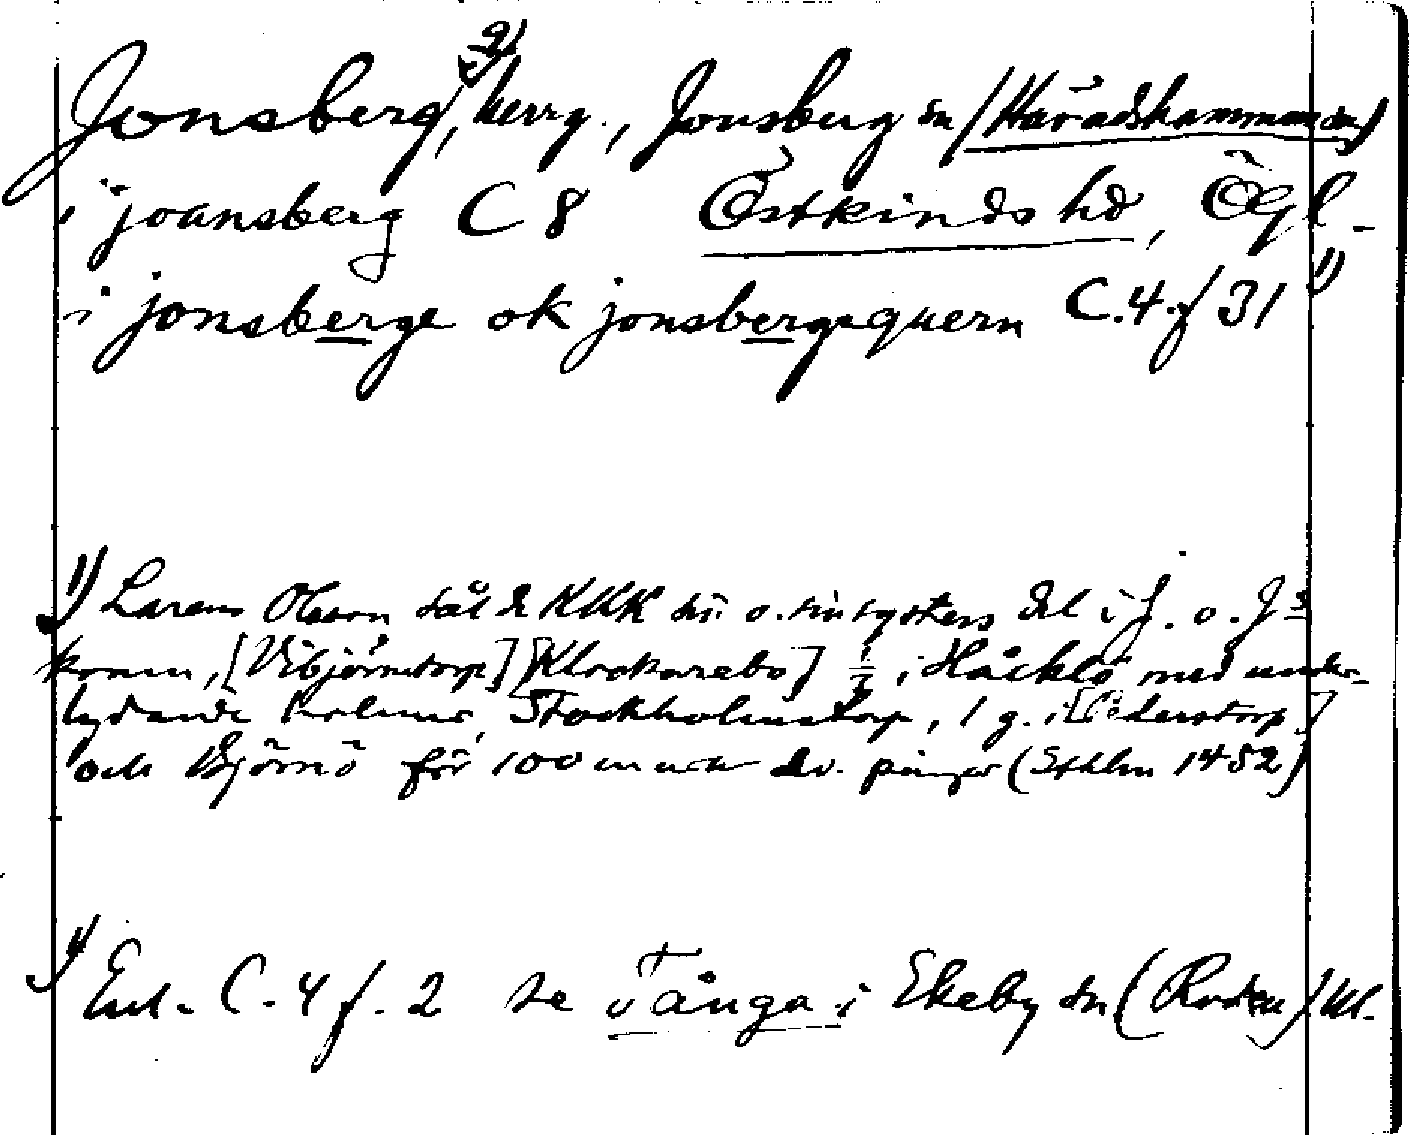 Jonsberg, 2) herrg., Jonsberg sn (Häradshammar sn)
i joansberg C 8 Östkinds hd, Ögl.
i jonsberge ok jonsbergaquern C.4.f 31 1)
1) Larens Olsson sålde KKK sin o. sin systers del i J. o. J-s
kvarn, [Vibjörnstorp] [Klockarebo] 1/2 i Häcklö med under-
lydande holmar, Stockholmstorp, 1 g. i [Cederstorp]
och Björnö för 100 mark sv. pngar (Sthlm 1452)
Enl. C. 4 f. 2 se Tånga i Ekeby sn (Roden) Upl.